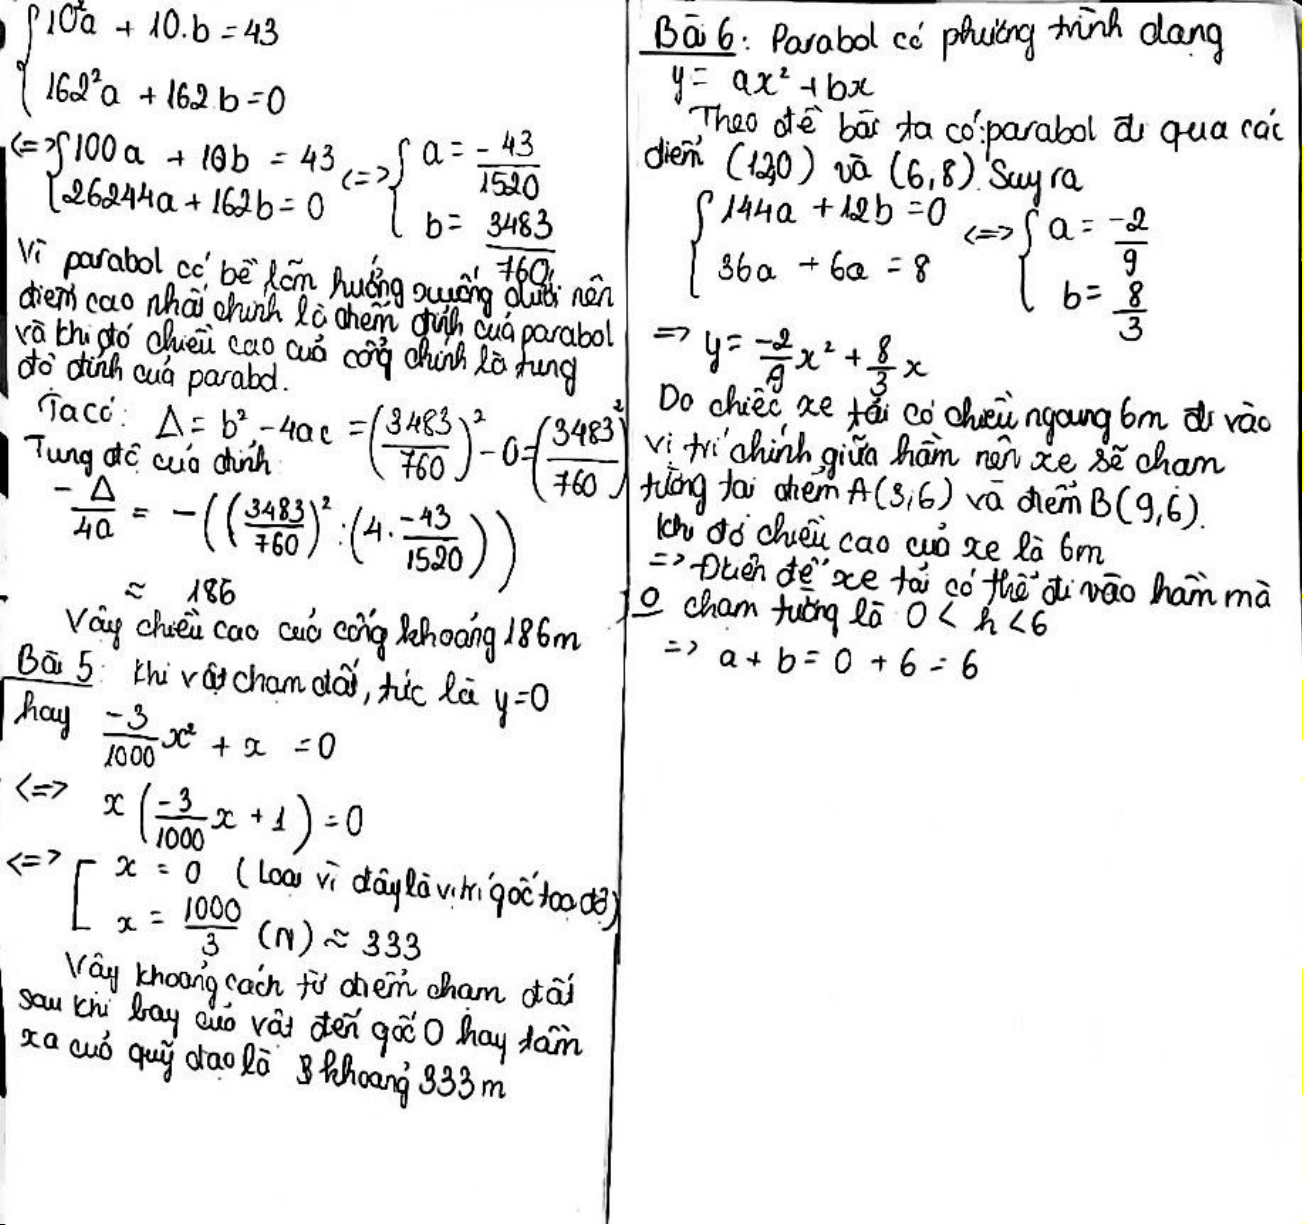 { 10²a + 10.b = 43
162²a + 162.b = 0
<=> { 100a + 10b = 43
26244a + 162b = 0
<=> { a = -43/1520
b = 3483/760
Vì parabol có bề lõm hướng xuống dưới nên
điểm cao nhất chính là điểm đỉnh của parabol
và khi đó chiều cao của cổng chính là tung
độ đỉnh của parabol.
Ta có: Δ = b² - 4ac = (3483/760)² - 0 = (3483/760)²
Tung độ của đỉnh
-Δ/4a = -((3483/760)² : (4 . -43/1520))
≈ 186
Vậy chiều cao của cổng khoảng 186m
Bài 5: Khi vật chạm đất, tức là y=0
hay -3/1000 x² + x = 0
<=> x(-3/1000 x + 1) = 0
<=> [ x = 0 (Loại vì đây là vị trí gốc toạ độ)
x = 1000/3 (N) ≈ 333
Vậy khoảng cách từ điểm chạm đất
sau khi bay của vật đến gốc O hay tầm
xa của quỹ đạo là khoảng 333m
Bài 6: Parabol có phương trình dạng
y = ax² + bx
Theo đề bài ta có: parabol đi qua các
điểm (12,0) và (6,8). Suy ra
{ 144a + 12b = 0
36a + 6a = 8
<=> { a = -2/9
b = 8/3
=> y = -2/9 x² + 8/3 x
Do chiếc xe tải có chiều ngang 6m đi vào
vị trí chính giữa hầm nên xe sẽ chạm
tường tại điểm A(3;6) và điểm B(9,6).
Khi đó chiều cao của xe là 6m
=> Điều để xe tải có thể đi vào hầm mà
chạm tường là 0 < h < 6
=> a + b = 0 + 6 = 6